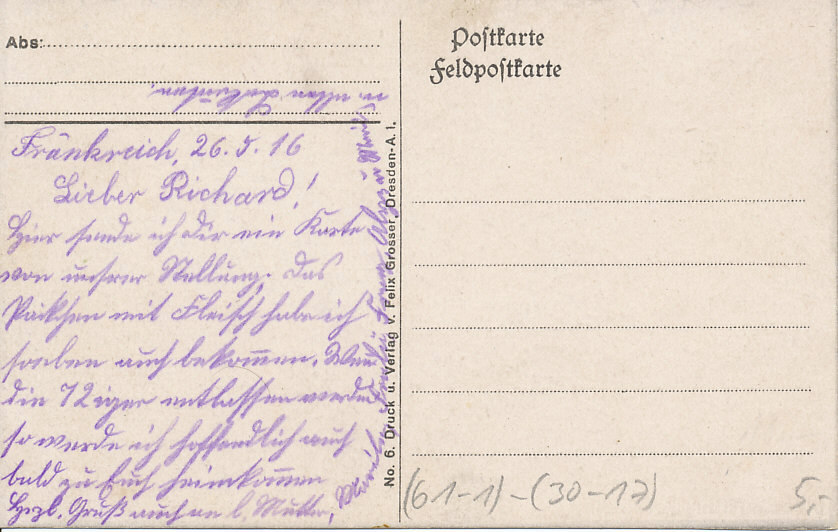 Abs:
Postkarte
Feldpostkarte
Frankreich, 26.5.16
Lieber Richard!
Hier sende ich Dir ein Karte
von unsrer Stellung. Das
Päckchen mit Fleisch habe ich
soeben auch bekommen. Wenn
die 72iger entlassen werden
so werde ich hoffendlich auch
bald zu Euch heimkommen
Herzl. Gruß auch an l. Mutter,
u. allen
No. 6. Druck u. Verlag v. Felix Grosser, Dresden-A. I.
(61-1)-(30-17)
5,-